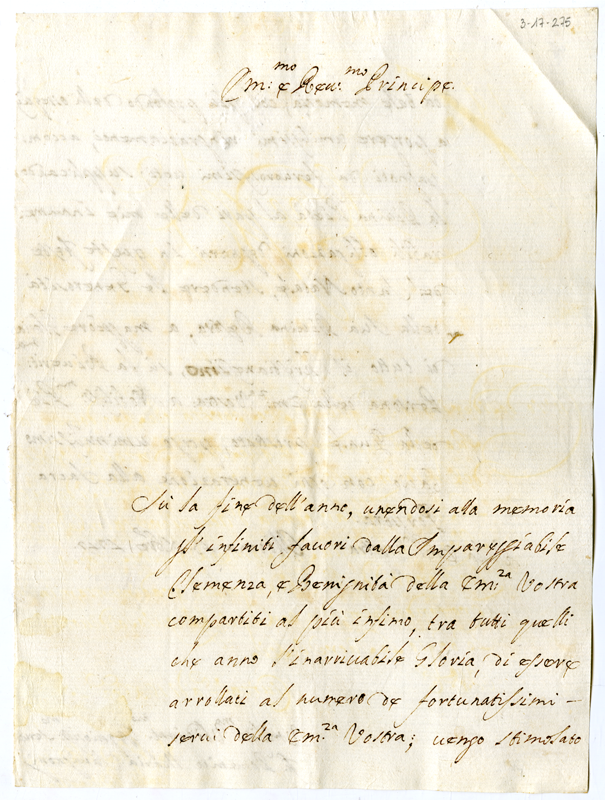 3-17-275
Em:mo e Reu:mo Principe.
Sù la fine dell'anno, unendosi alla memoria
gl'infiniti fauori dalla Impareggiabile
Clemenza, e Benignità della Em:za Vostra
compartiti al più infimo, tra tutti quelli
che anno l'inarriuabile Gloria, di essere
arrollati al numero de fortunatissimi -
serui della Em:za Vostra; uengo stimolato